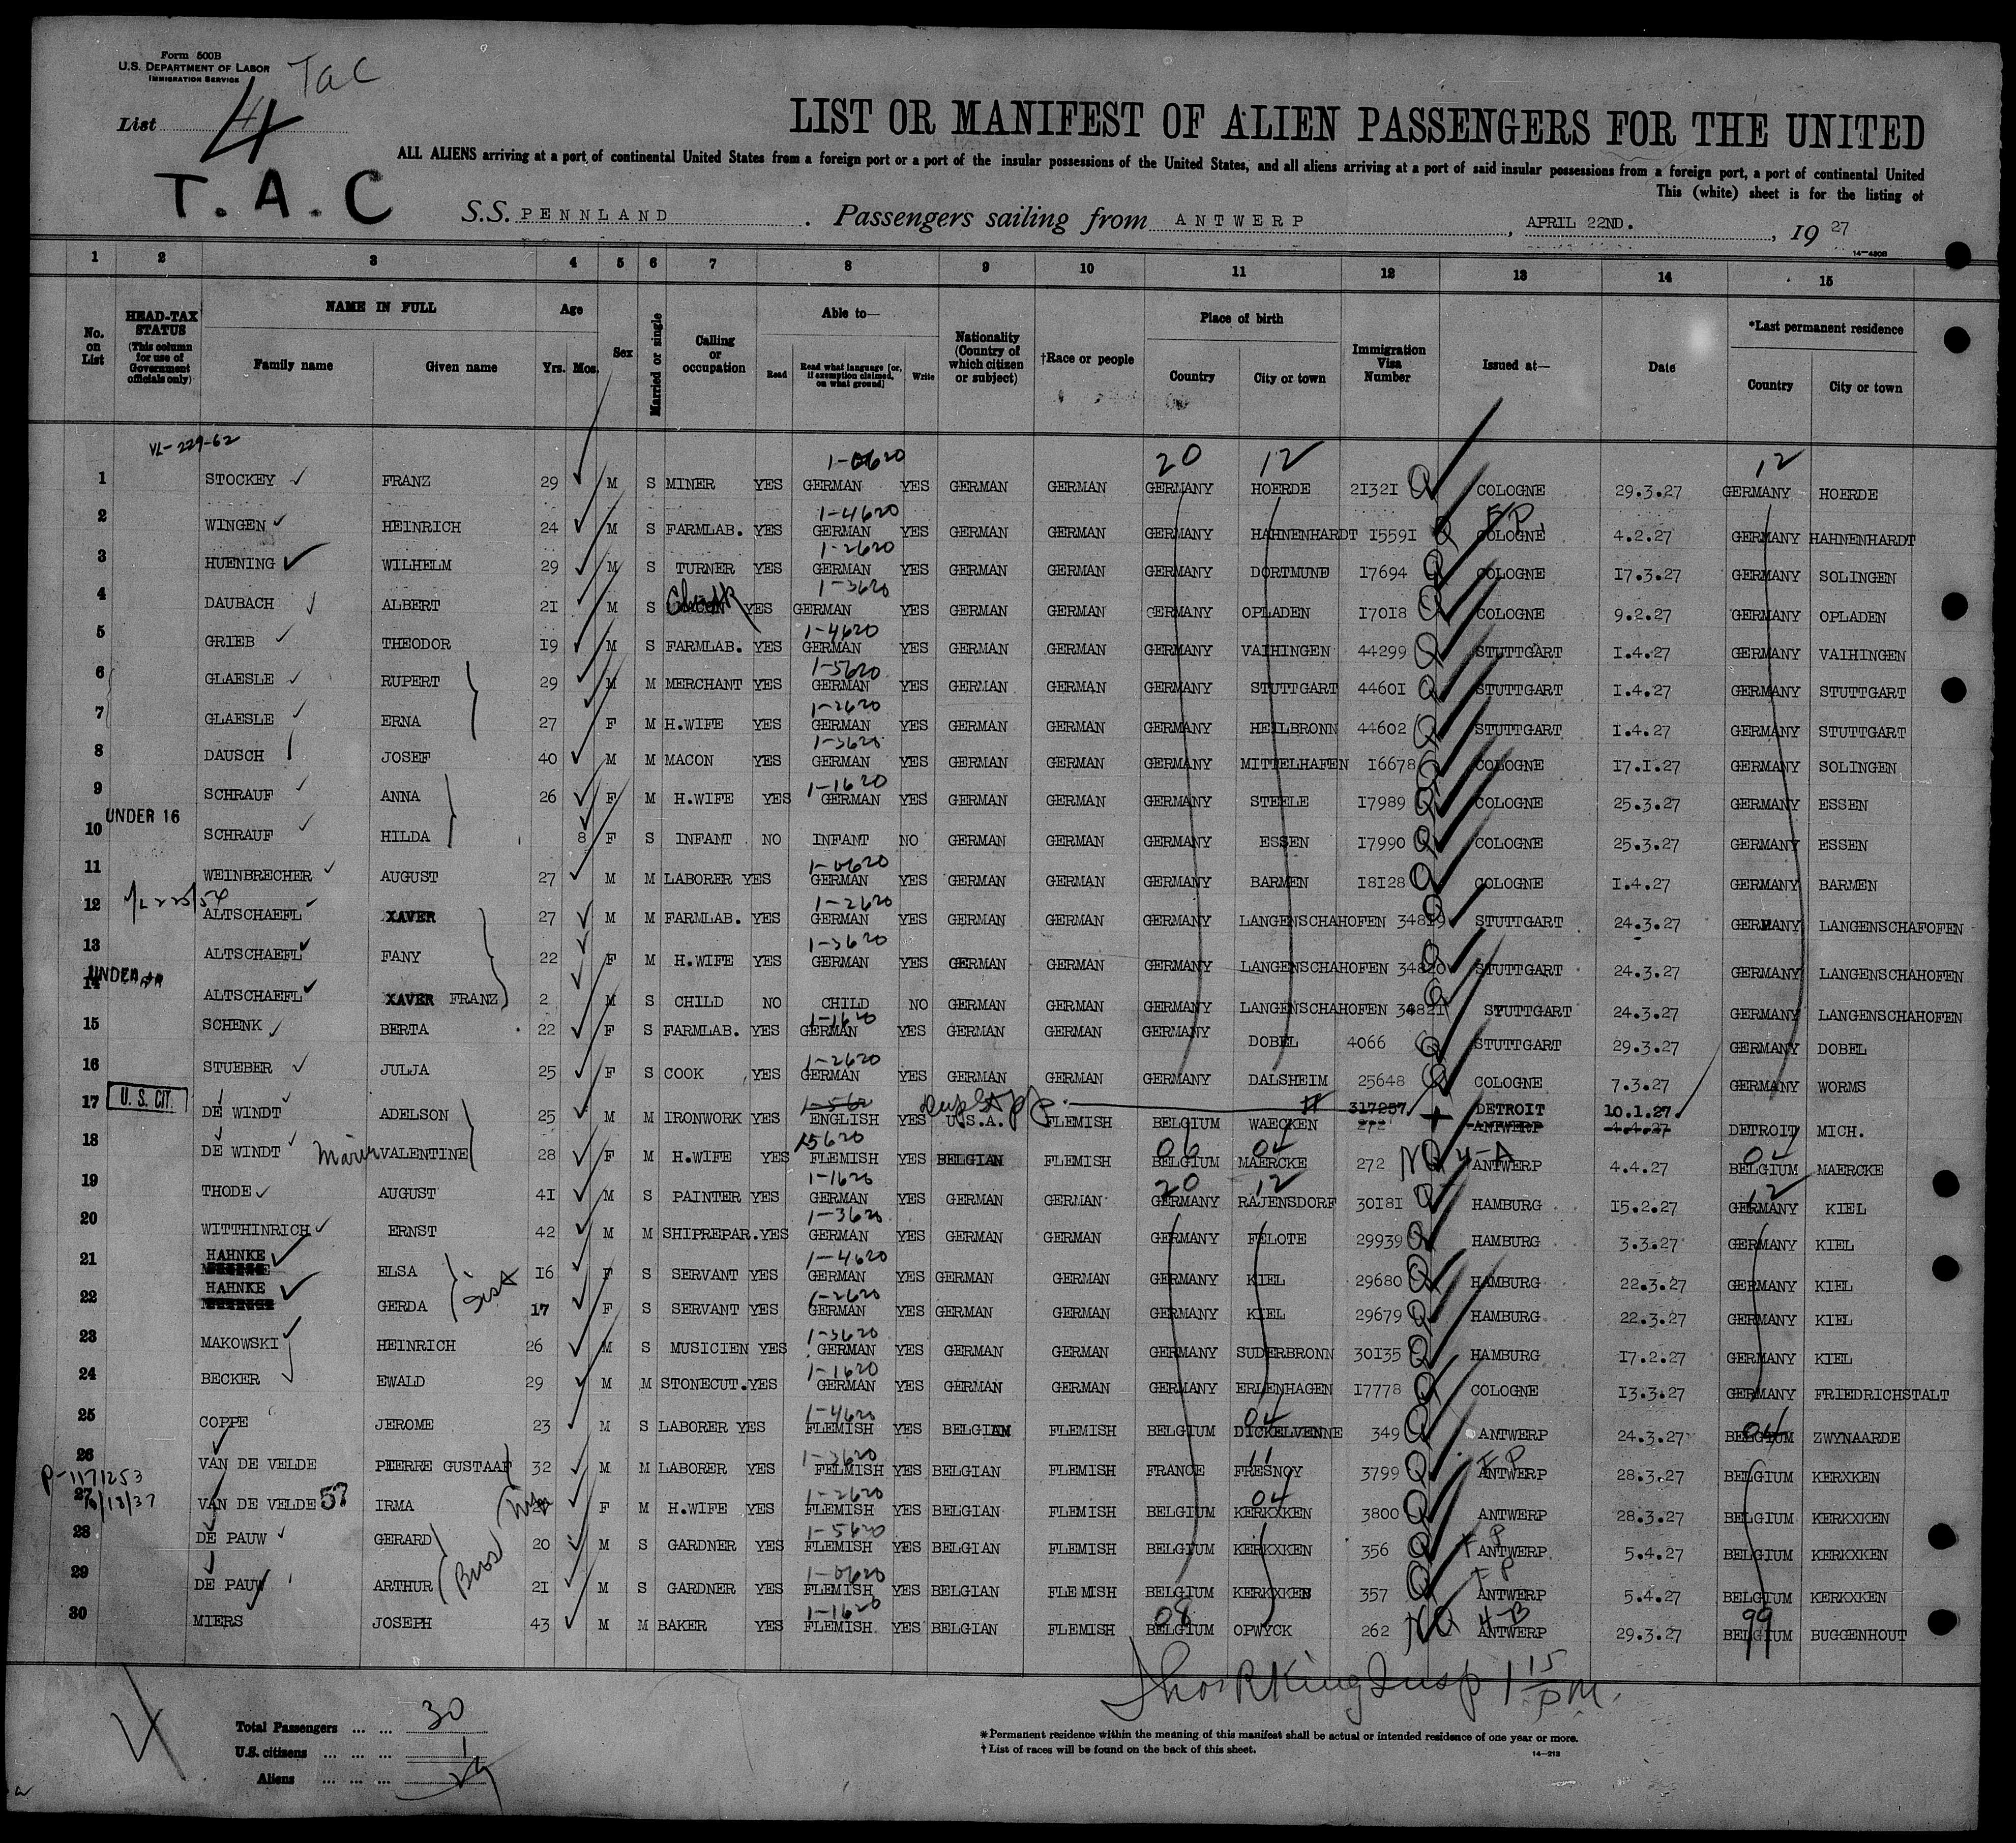 Form 500B
U.S. DEPARTMENT OF LABOR
IMMIGRATION SERVICE
Tac
List 4
T.A.C
LIST OR MANIFEST OF ALIEN PASSENGERS FOR THE UNITED
ALL ALIENS arriving at a port of continental United States from a foreign port or a port of the insular possessions of the United States, and all aliens arriving at a port of said insular possessions from a foreign port, a port of continental United
This (white) sheet is for the listing of
S.S. PENNLAND. Passengers sailing from ANTWERP, APRIL 22ND., 1927
14-4806
1 2 3 4 5 6 7 8 9 10 11 12 13 14 15
No. on List
HEAD-TAX STATUS (This column for use of Government officials only)
NAME IN FULL
Family name Given name
Age
Yrs. Mos.
Sex
Married or single
Calling or occupation
Able to—
Read Read what language [or, if exemption claimed, on what ground] Write
Nationality (Country of which citizen or subject)
†Race or people
Place of birth
Country City or town
Immigration Visa Number
Issued at—
Date
*Last permanent residence
Country City or town
VL-229-62
20 12 12
1 STOCKEY FRANZ 29 M S MINER YES GERMAN YES GERMAN GERMAN GERMANY HOERDE 21321 Q COLOGNE 29.3.27 GERMANY HOERDE
1-4620 FP
2 WINGEN HEINRICH 24 M S FARMLAB. YES GERMAN YES GERMAN GERMAN GERMANY HAHNENHARDT 15591 Q COLOGNE 4.2.27 GERMANY HAHNENHARDT
1-2620
3 HUENING WILHELM 29 M S TURNER YES GERMAN YES GERMAN GERMAN GERMANY DORTMUND 17694 Q COLOGNE 17.3.27 GERMANY SOLINGEN
1-3620
4 DAUBACH ALBERT 21 M S Clerk YES GERMAN YES GERMAN GERMAN GERMANY OPLADEN 17018 Q COLOGNE 9.2.27 GERMANY OPLADEN
1-4620
5 GRIEB THEODOR 19 M S FARMLAB. YES GERMAN YES GERMAN GERMAN GERMANY VAIHINGEN 44299 Q STUTTGART 1.4.27 GERMANY VAIHINGEN
1-5620
6 GLAESLE RUPERT 29 M M MERCHANT YES GERMAN YES GERMAN GERMAN GERMANY STUTTGART 44601 Q STUTTGART 1.4.27 GERMANY STUTTGART
1-2620
7 GLAESLE ERNA 27 F M H.WIFE YES GERMAN YES GERMAN GERMAN GERMANY HEILBRONN 44602 Q STUTTGART 1.4.27 GERMANY STUTTGART
1-3620
8 DAUSCH JOSEF 40 M M MACON YES GERMAN YES GERMAN GERMAN GERMANY MITTELHAFEN 16678 Q COLOGNE 17.1.27 GERMANY SOLINGEN
1-1620
9 SCHRAUF ANNA 26 F M H.WIFE YES GERMAN YES GERMAN GERMAN GERMANY STEELE 17989 Q COLOGNE 25.3.27 GERMANY ESSEN
UNDER 16
10 SCHRAUF HILDA 8 F S INFANT NO INFANT NO GERMAN GERMAN GERMANY ESSEN 17990 Q COLOGNE 25.3.27 GERMANY ESSEN
1-0620
11 WEINBRECHER AUGUST 27 M M LABORER YES GERMAN YES GERMAN GERMAN GERMANY BARMEN 18128 Q COLOGNE 1.4.27 GERMANY BARMEN
1-2620
12 ALTSCHAEFL XAVER 27 M M FARMLAB. YES GERMAN YES GERMAN GERMAN GERMANY LANGENSCHAHOFEN 34819 Q STUTTGART 24.3.27 GERMANY LANGENSCHAFOFEN
1-3620
13 ALTSCHAEFL FANY 22 F M H.WIFE YES GERMAN YES GERMAN GERMAN GERMANY LANGENSCHAHOFEN 34820 Q STUTTGART 24.3.27 GERMANY LANGENSCHAHOFEN
UNDER
14 ALTSCHAEFL XAVER FRANZ 2 M S CHILD NO CHILD NO GERMAN GERMAN GERMANY LANGENSCHAHOFEN 34821 Q STUTTGART 24.3.27 GERMANY LANGENSCHAHOFEN
1-1620
15 SCHENK BERTA 22 F S FARMLAB. YES GERMAN YES GERMAN GERMAN GERMANY DOBEL 4066 Q STUTTGART 29.3.27 GERMANY DOBEL
1-2620
16 STUEBER JULJA 25 F S COOK YES GERMAN YES GERMAN GERMAN GERMANY DALSHEIM 25648 Q COLOGNE 7.3.27 GERMANY WORMS
U.S. CIT.
1-562 317257 DETROIT 10.1.27
17 DE WINDT ADELSON 25 M M IRONWORK YES ENGLISH YES U.S.A. FLEMISH BELGIUM WAECKEN 272 ANTWERP 4.4.27 DETROIT MICH.
15620 06 04 04
18 DE WINDT Marie VALENTINE 28 F M H.WIFE YES FLEMISH YES BELGIAN FLEMISH BELGIUM MAERCKE 272 NQ 4-A ANTWERP 4.4.27 BELGIUM MAERCKE
1-1620 20 12 12
19 THODE AUGUST 41 M S PAINTER YES GERMAN YES GERMAN GERMAN GERMANY RAJENSDORF 30181 Q HAMBURG 15.2.27 GERMANY KIEL
1-3620
20 WITTHINRICH ERNST 42 M M SHIPREPAR. YES GERMAN YES GERMAN GERMAN GERMANY FELOTE 29939 Q HAMBURG 3.3.27 GERMANY KIEL
1-4620
21 HAHNKE ELSA 16 F S SERVANT YES GERMAN YES GERMAN GERMAN GERMANY KIEL 29680 Q HAMBURG 22.3.27 GERMANY KIEL
1-2620
22 HAHNKE GERDA 17 F S SERVANT YES GERMAN YES GERMAN GERMAN GERMANY KIEL 29679 Q HAMBURG 22.3.27 GERMANY KIEL
1-3620
23 MAKOWSKI HEINRICH 26 M S MUSICIEN YES GERMAN YES GERMAN GERMAN GERMANY SUDERBRONN 30135 Q HAMBURG 17.2.27 GERMANY KIEL
1-1620
24 BECKER EWALD 29 M M STONECUT. YES GERMAN YES GERMAN GERMAN GERMANY ERLENHAGEN 17778 Q COLOGNE 13.3.27 GERMANY FRIEDRICHSTALT
1-4620 04 04
25 COPPE JEROME 23 M S LABORER YES FLEMISH YES BELGIAN FLEMISH BELGIUM DICKELVENNE 349 Q ANTWERP 24.3.27 BELGIUM ZWYNAARDE
1-3620 11 FP
26 VAN DE VELDE PIERRE GUSTAAF 32 M M LABORER YES FELMISH YES BELGIAN FLEMISH FRANCE FRESNOY 3799 Q ANTWERP 28.3.27 BELGIUM KERXKEN
P-117/253
1-2620 04
27 VAN DE VELDE 57 IRMA F M H.WIFE YES FLEMISH YES BELGIAN FLEMISH BELGIUM KERKXKEN 3800 Q ANTWERP 28.3.27 BELGIUM KERKXKEN
1-5620 FP
28 DE PAUW GERARD 20 M S GARDNER YES FLEMISH YES BELGIAN FLEMISH BELGIUM KERKXKEN 356 Q ANTWERP 5.4.27 BELGIUM KERKXKEN
Bros
1-0620 FP
29 DE PAUW ARTHUR 21 M S GARDNER YES FLEMISH YES BELGIAN FLEMISH BELGIUM KERKXKEN 357 Q ANTWERP 5.4.27 BELGIUM KERKXKEN
1-1620 08 4-B 99
30 MIERS JOSEPH 43 M M BAKER YES FLEMISH. YES BELGIAN FLEMISH BELGIUM OPWYCK 262 NQ ANTWERP 29.3.27 BELGIUM BUGGENHOUT
Thos R King Insp 1 15 PM.
Total Passengers ... ... 30
U.S. citizens ... ... ... 1
Aliens ... ... ... 29
*Permanent residence within the meaning of this manifest shall be actual or intended residence of one year or more.
†List of races will be found on the back of this sheet.
14-213